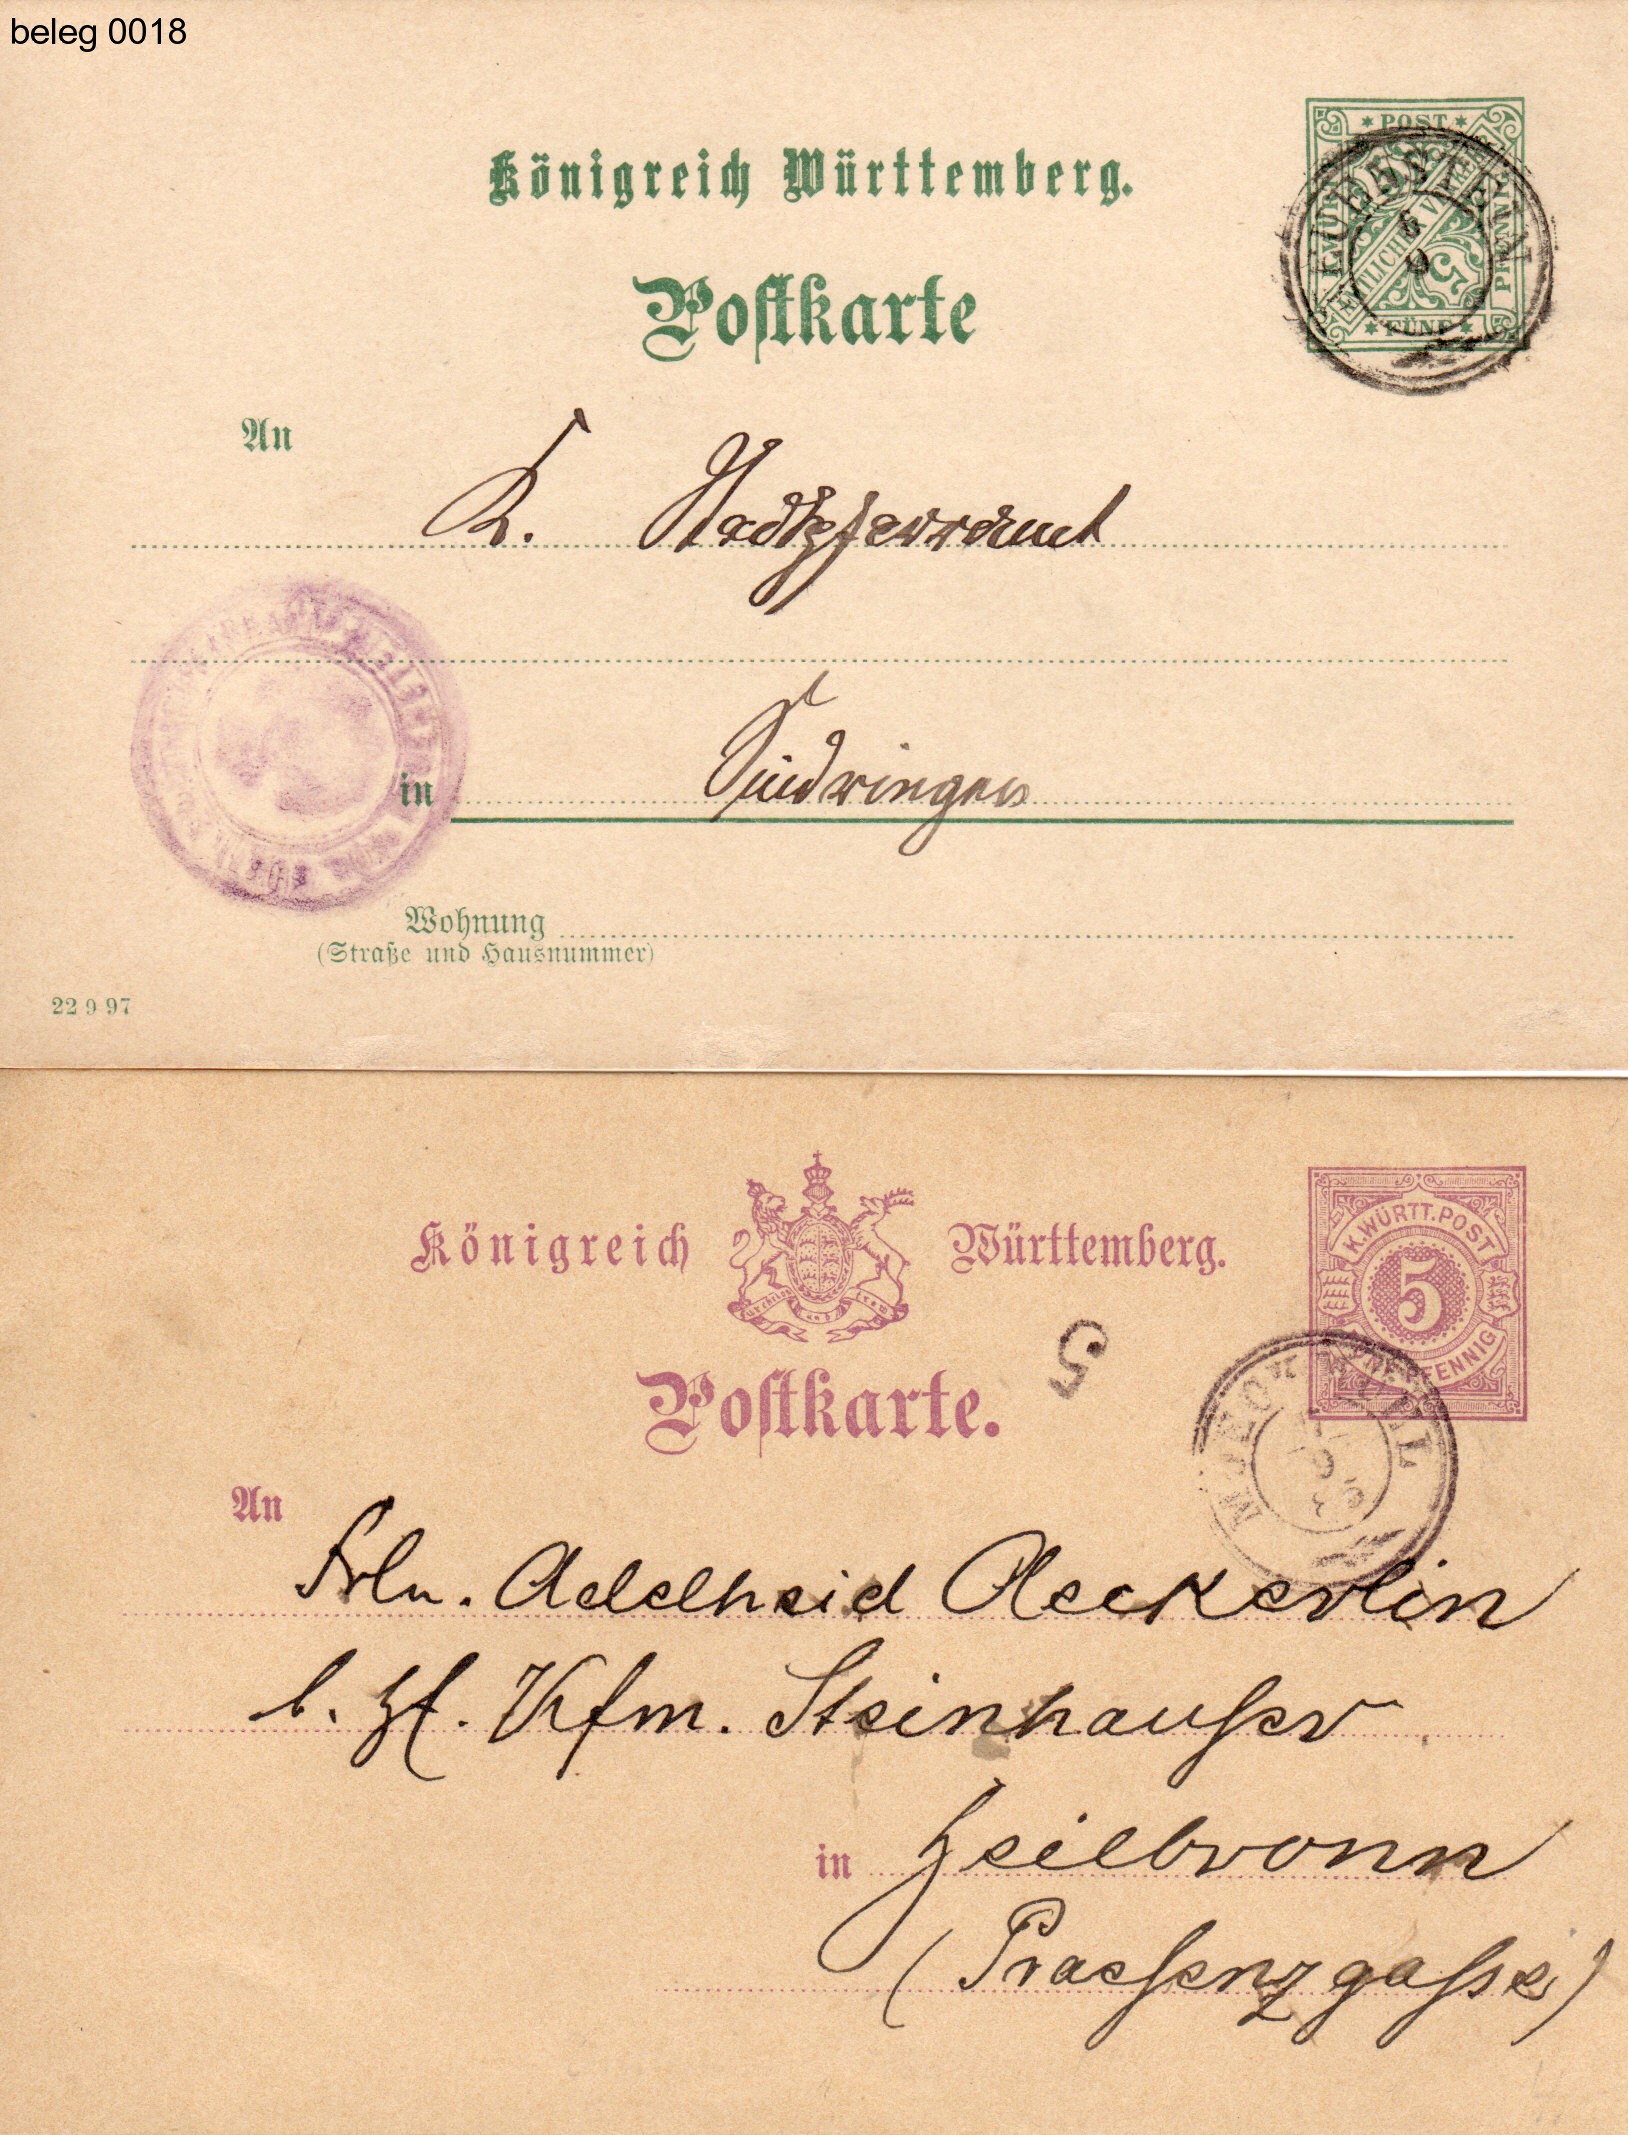 beleg 0018
Königreich Württemberg.
Postkarte
* POST *
AMTLICHER VERKEHR
5
PFENNIG
* FÜNF *
6
9
An
K. Stadtpfarramt
in Sindringen
Wohnung
(Straße und Hausnummer)
22 9 97
Königreich Württemberg.
K. WÜRTT. POST
5
PFENNIG
5
Postkarte.
An
Frln. Adelheid Aeckerlin
b. H. Kfm. Steinhauser
in Heilbronn
(Praesenzgasse)